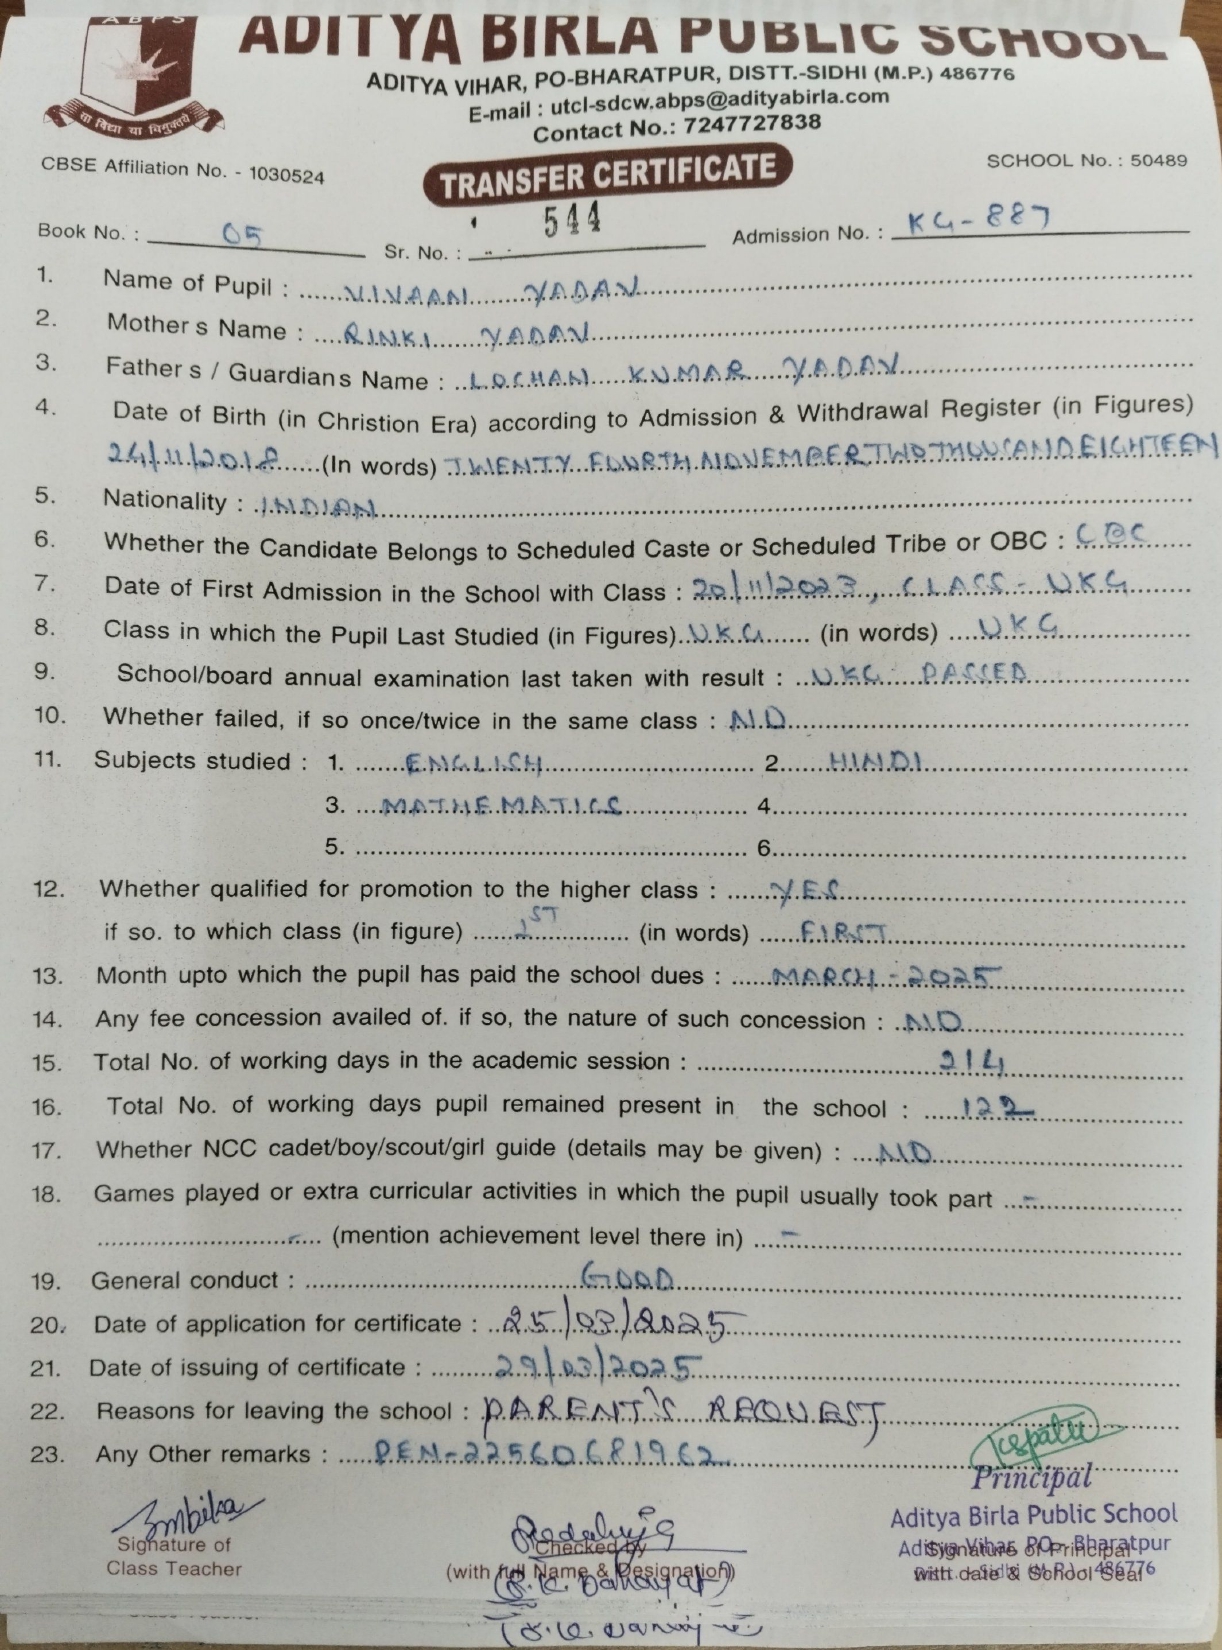 ABPS
ADITYA BIRLA PUBLIC SCHOOL
ADITYA VIHAR, PO-BHARATPUR, DISTT.-SIDHI (M.P.) 486776
E-mail : utcl-sdcw.abps@adityabirla.com
Contact No.: 7247727838
सा विद्या या विमुक्तये
CBSE Affiliation No. - 1030524
SCHOOL No. : 50489
TRANSFER CERTIFICATE
Book No. : 05 Sr. No. : 544 Admission No. : KG-887
1. Name of Pupil : VIVAAN YADAV
2. Mother s Name : RINKI YADAV
3. Father s / Guardians Name : LOCHAN KUMAR YADAV
4. Date of Birth (in Christion Era) according to Admission & Withdrawal Register (in Figures)
24/11/2018 (In words) TWENTY FOURTH NOVEMBER TWO THOUSAND EIGHTEEN
5. Nationality : INDIAN
6. Whether the Candidate Belongs to Scheduled Caste or Scheduled Tribe or OBC : OBC
7. Date of First Admission in the School with Class : 20/11/2023, CLASS - UKG
8. Class in which the Pupil Last Studied (in Figures) UKG (in words) UKG
9. School/board annual examination last taken with result : UKG PASSED
10. Whether failed, if so once/twice in the same class : NO
11. Subjects studied : 1. ENGLISH 2. HINDI
3. MATHEMATICS 4.
5. 6.
12. Whether qualified for promotion to the higher class : YES
if so. to which class (in figure) 1ST (in words) FIRST
13. Month upto which the pupil has paid the school dues : MARCH - 2025
14. Any fee concession availed of. if so, the nature of such concession : NO
15. Total No. of working days in the academic session : 214
16. Total No. of working days pupil remained present in the school : 122
17. Whether NCC cadet/boy/scout/girl guide (details may be given) : NO
18. Games played or extra curricular activities in which the pupil usually took part -
- (mention achievement level there in) -
19. General conduct : GOOD
20. Date of application for certificate : 25/03/2025
21. Date of issuing of certificate : 29/03/2025
22. Reasons for leaving the school : PARENT'S REQUEST
23. Any Other remarks : PEN-22560681962
Principal
Aditya Birla Public School
Aditya Vihar, PO - Bharatpur
Distt. - Sidhi (M.P.) - 486776
Signature of
Class Teacher
Checked by
(with full Name & Designation)
Signature of Principal
with date & School Seal